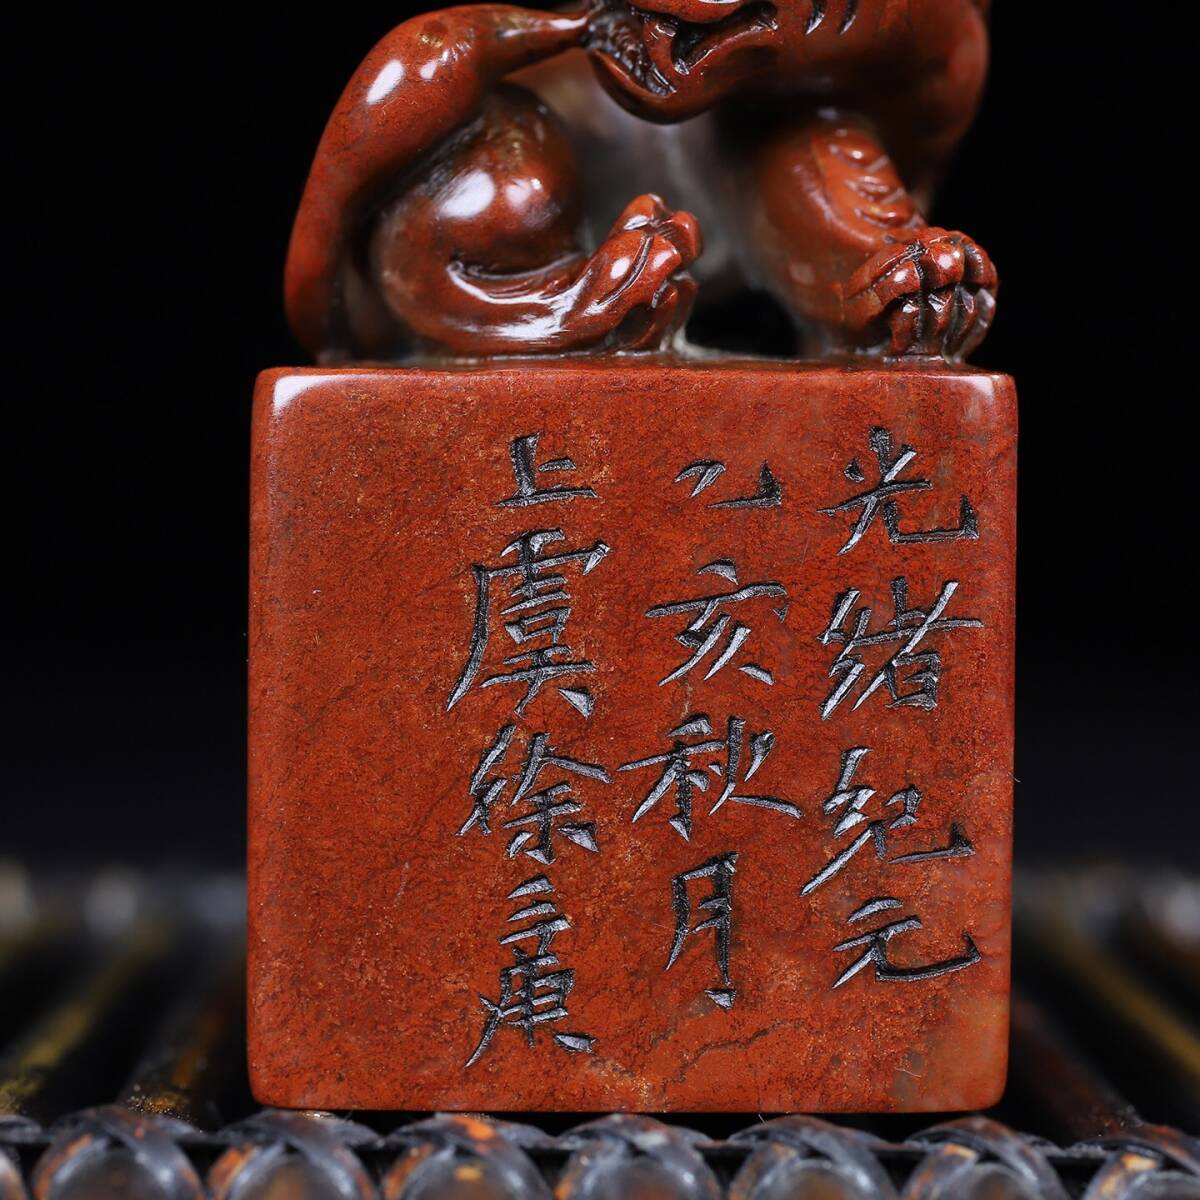 光緒紀元
乙亥秋月
上虞徐三庚